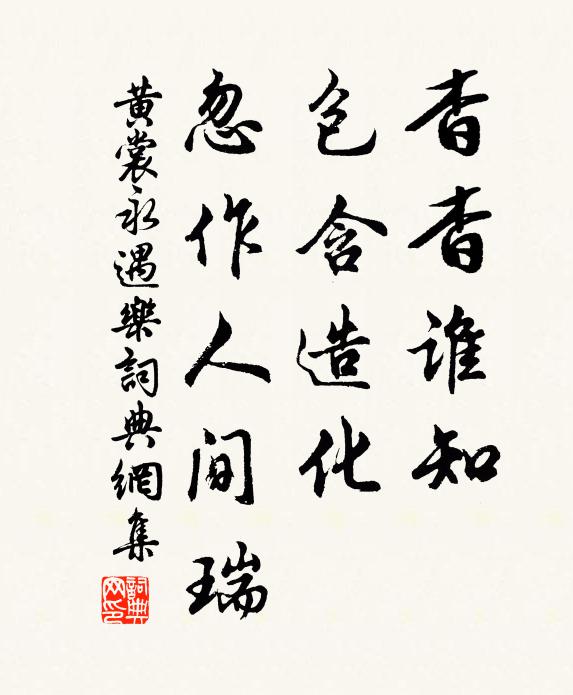 杳杳誰知
包含造化
忽作人間瑞
黄裳永遇樂詞典網集
詞典
网印